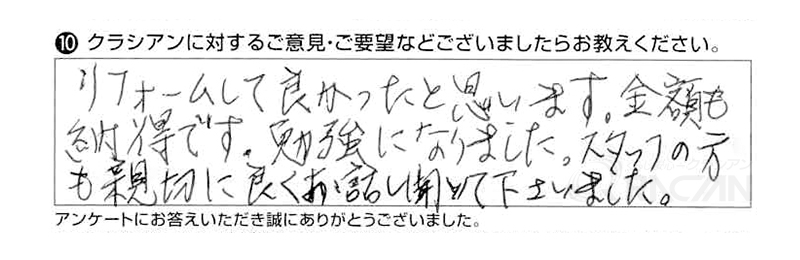 ⑩ クラシアンに対するご意見・ご要望などございましたらお教えください。
リフォームして良かったと思います。金額も
納得です。勉強になりました。スタッフの方
も親切に良くお話し聞めて下さいました。
アンケートにお答えいただき誠にありがとうございました。